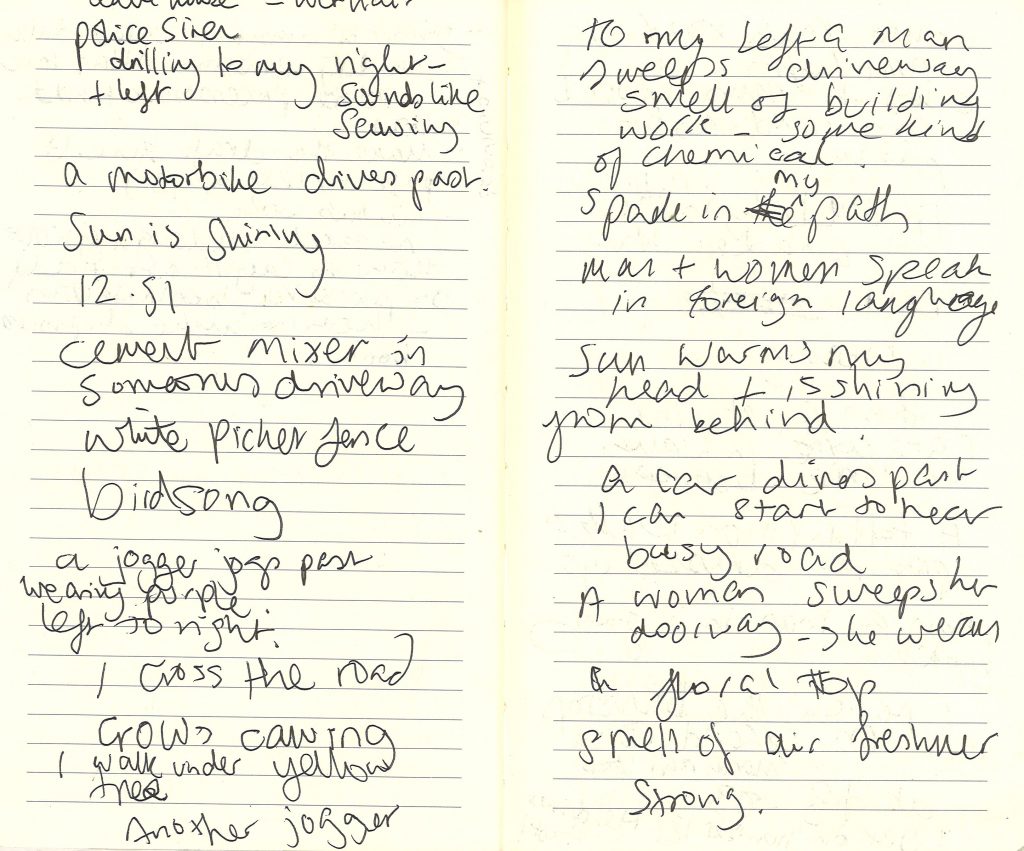 police siren
drilling to my right -
+ left sounds like
sewing
a motorbike drives past.
Sun is shining
12.51
cement mixer in
someones driveway
white picket fence
birdsong
a jogger jogs past
wearing purple
left to right.
I cross the road
Crows cawing
I walk under yellow
tree
Another jogger
To my left a man
sweeps driveway
smell of building
work - some kind
of chemical.
my
Spade in the path
man + women speak
in foreign language
Sun warms my
head + is shining
from behind.
a car drives past
I can start to hear
busy road
A woman sweeps her
doorway - she wears
a floral top
smell of air freshner
strong.